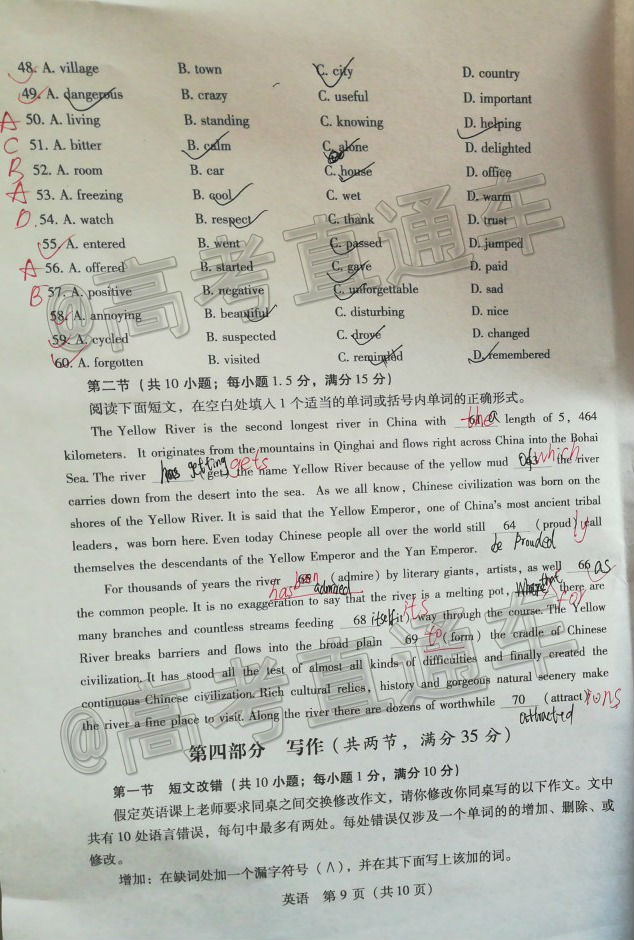 48. A. village B. town C. city D. country
49. A. dangerous B. crazy C. useful D. important
A 50. A. living B. standing C. knowing D. helping
C 51. A. bitter B. calm C. alone D. delighted
B 52. A. room B. car C. house D. office
A 53. A. freezing B. cool C. wet D. warm
D. 54. A. watch B. respect C. thank D. trust
55. A. entered B. went C. passed D. jumped
A 56. A. offered B. started C. gave D. paid
B 57. A. positive B. negative C. unforgettable D. sad
58. A. annoying B. beautiful C. disturbing D. nice
59. A. cycled B. suspected C. drove D. changed
60. A. forgotten B. visited C. reminded D. remembered
@高考直通车
第二节（共 10 小题；每小题 1.5 分，满分 15 分）
阅读下面短文，在空白处填入 1 个适当的单词或括号内单词的正确形式。
The Yellow River is the second longest river in China with 61 the a length of 5, 464
kilometers. It originates from the mountains in Qinghai and flows right across China into the Bohai
Sea. The river has getting (get) gets the name Yellow River because of the yellow mud 63 of which the river
carries down from the desert into the sea. As we all know, Chinese civilization was born on the
shores of the Yellow River. It is said that the Yellow Emperor, one of China's most ancient tribal
leaders, was born here. Even today Chinese people all over the world still 64 (proud) ly call
be prouded
themselves the descendants of the Yellow Emperor and the Yan Emperor.
For thousands of years the river has been 65 admired (admire) by literary giants, artists, as well 66 as
the common people. It is no exaggeration to say that the river is a melting pot, that for there are
many branches and countless streams feeding 68 itself (it) its way through the course. The Yellow
River breaks barriers and flows into the broad plain 69 to (form) the cradle of Chinese
civilization. It has stood all the test of almost all kinds of difficulties and finally created the
continuous Chinese civilization. Rich cultural relics, history and gorgeous natural scenery make
the river a fine place to visit. Along the river there are dozens of worthwhile 70 (attract) ions
attracted
@高考直通车
第四部分 写作（共两节，满分 35 分）
第一节 短文改错（共 10 小题；每小题 1 分，满分 10 分）
假定英语课上老师要求同桌之间交换修改作文，请你修改你同桌写的以下作文。文中
共有 10 处语言错误，每句中最多有两处。每处错误仅涉及一个单词的的增加、删除、或
修改。
增加：在缺词处加一个漏字符号（∧），并在其下面写上该加的词。
英语 第 9 页（共 10 页）